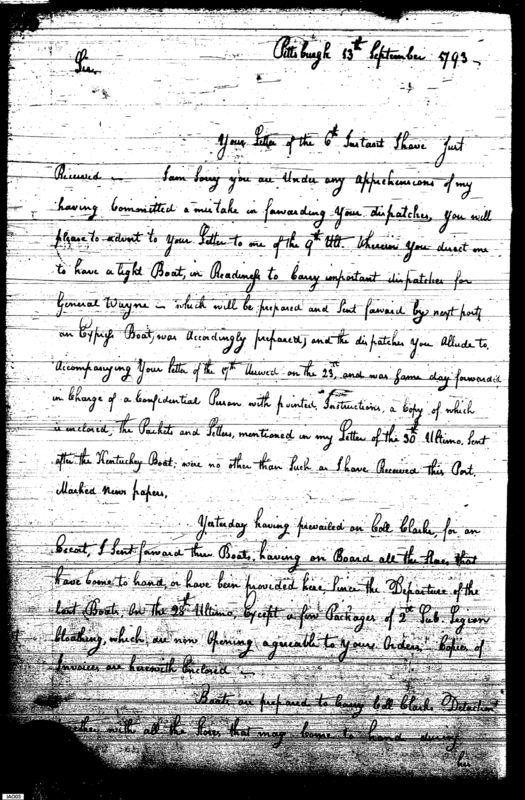 Pittsburgh 13th September 1793 -
Sir,
Your Letter of the 6th Instant I have Just
Received - I am Sorry you are Under any apprehensions of my
having Committed a mistake in forwarding Your dispatches, you will
please to advert to Your Letter to me of the 9th Ult. Wherein You direct me
to have a tight Boat, in Readiness to Carry important dispatches for
General Wayne - which will be prepared and Sent forward by next post,
an Express Boat, was Accordingly prepared, and the dispatches You Allude to,
Accompanying Your letter of the 17th Received on the 23rd, and was Same day forwarded
in Charge of a Confidential Person with pointed, Instructions, a Copy of which
is enclosed, the Packets and Letters, mentioned in my Letter of the 30th Ultimo, Sent
after the Kentuckey Boat, were no other than Such as I have Received this Post,
Marked News papers,
Yesterday having prevailed on Coll Clarke, for an
Escort, I Sent forward three Boats, having on Board all the Stores, that
have Come to hand, or have been provided here, Since the Departure of the
last Boats, On the 28th Ultimo, Except a few Packages of 2d Sub. Legion
Cloathing, which are now Opening agreeable to Your Orders. Copies of
Invoices are herewith Enclosed -
Boats are prepared to Carry Coll Clarks Detachmt
together with all the Stores that may Come to hand during
his
IAO03